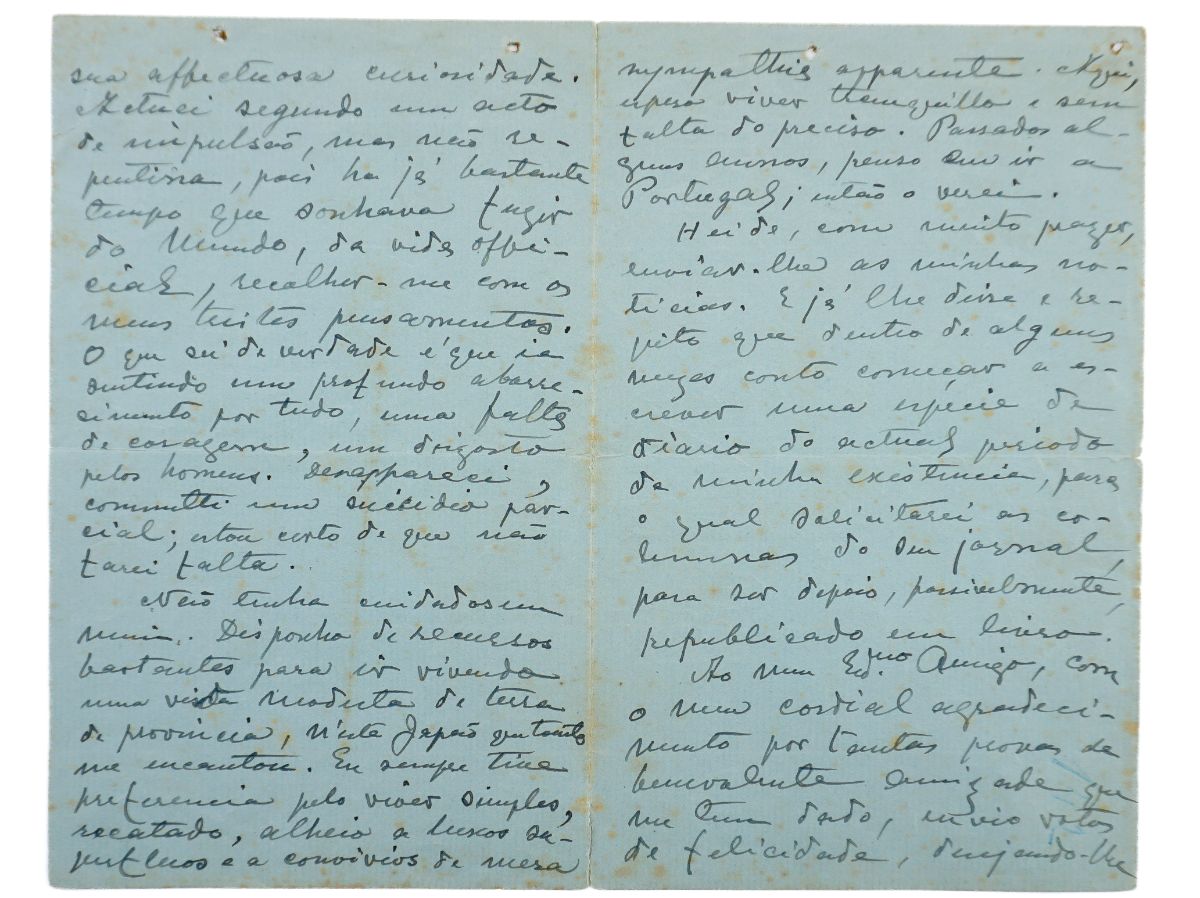 sua affectuosa curiosidade.
Actuei segundo um acto
de impulsão, mas não re-
pentina, pois ha já bastante
tempo que sonhava fugir
do Mundo, da vida offi-
cial, recolher-me com os
meus tristes pensamentos.
O que sei de verdade é que ia
sentindo um profundo aborre-
simento por tudo, uma falta
de coragem, um desgosto
pelos homens. Desappareci,
committi um suicidio par-
cial; estou certo de que não
farei falta.
Não tenha cuidados em
mim. Disponho de recursos
bastantes para ir vivendo
uma vida modesta de terra
de provincia, n'este Japão que tanto
me encantou. Eu sempre tive
preferencia pelo viver simples,
recatado, alheio a luxos su-
perfluos e a convivios de mera
sympathia apparente. Aqui,
espero viver tranquillo e sem
falta do preciso. Passados al-
guns annos, penso em ir a
Portugal; então o verei.
Hei de, com muito prazer,
enviar-lhe as minhas no-
ticias. E já lhe disse e re-
pito que dentro de alguns
mezes conto começar a es-
crever uma espécie de
diario do actual periodo
da minha existencia, para
o qual solicitarei as co-
lumnas do seu jornal,
para ser depois, possivelmente,
republicado em livro.
Ao meu Amigo, com
o meu cordial agradeci-
mento por tantas provas de
benevolente amizade que
me tem dado, envio votos
de felicidade, desejando-lhe